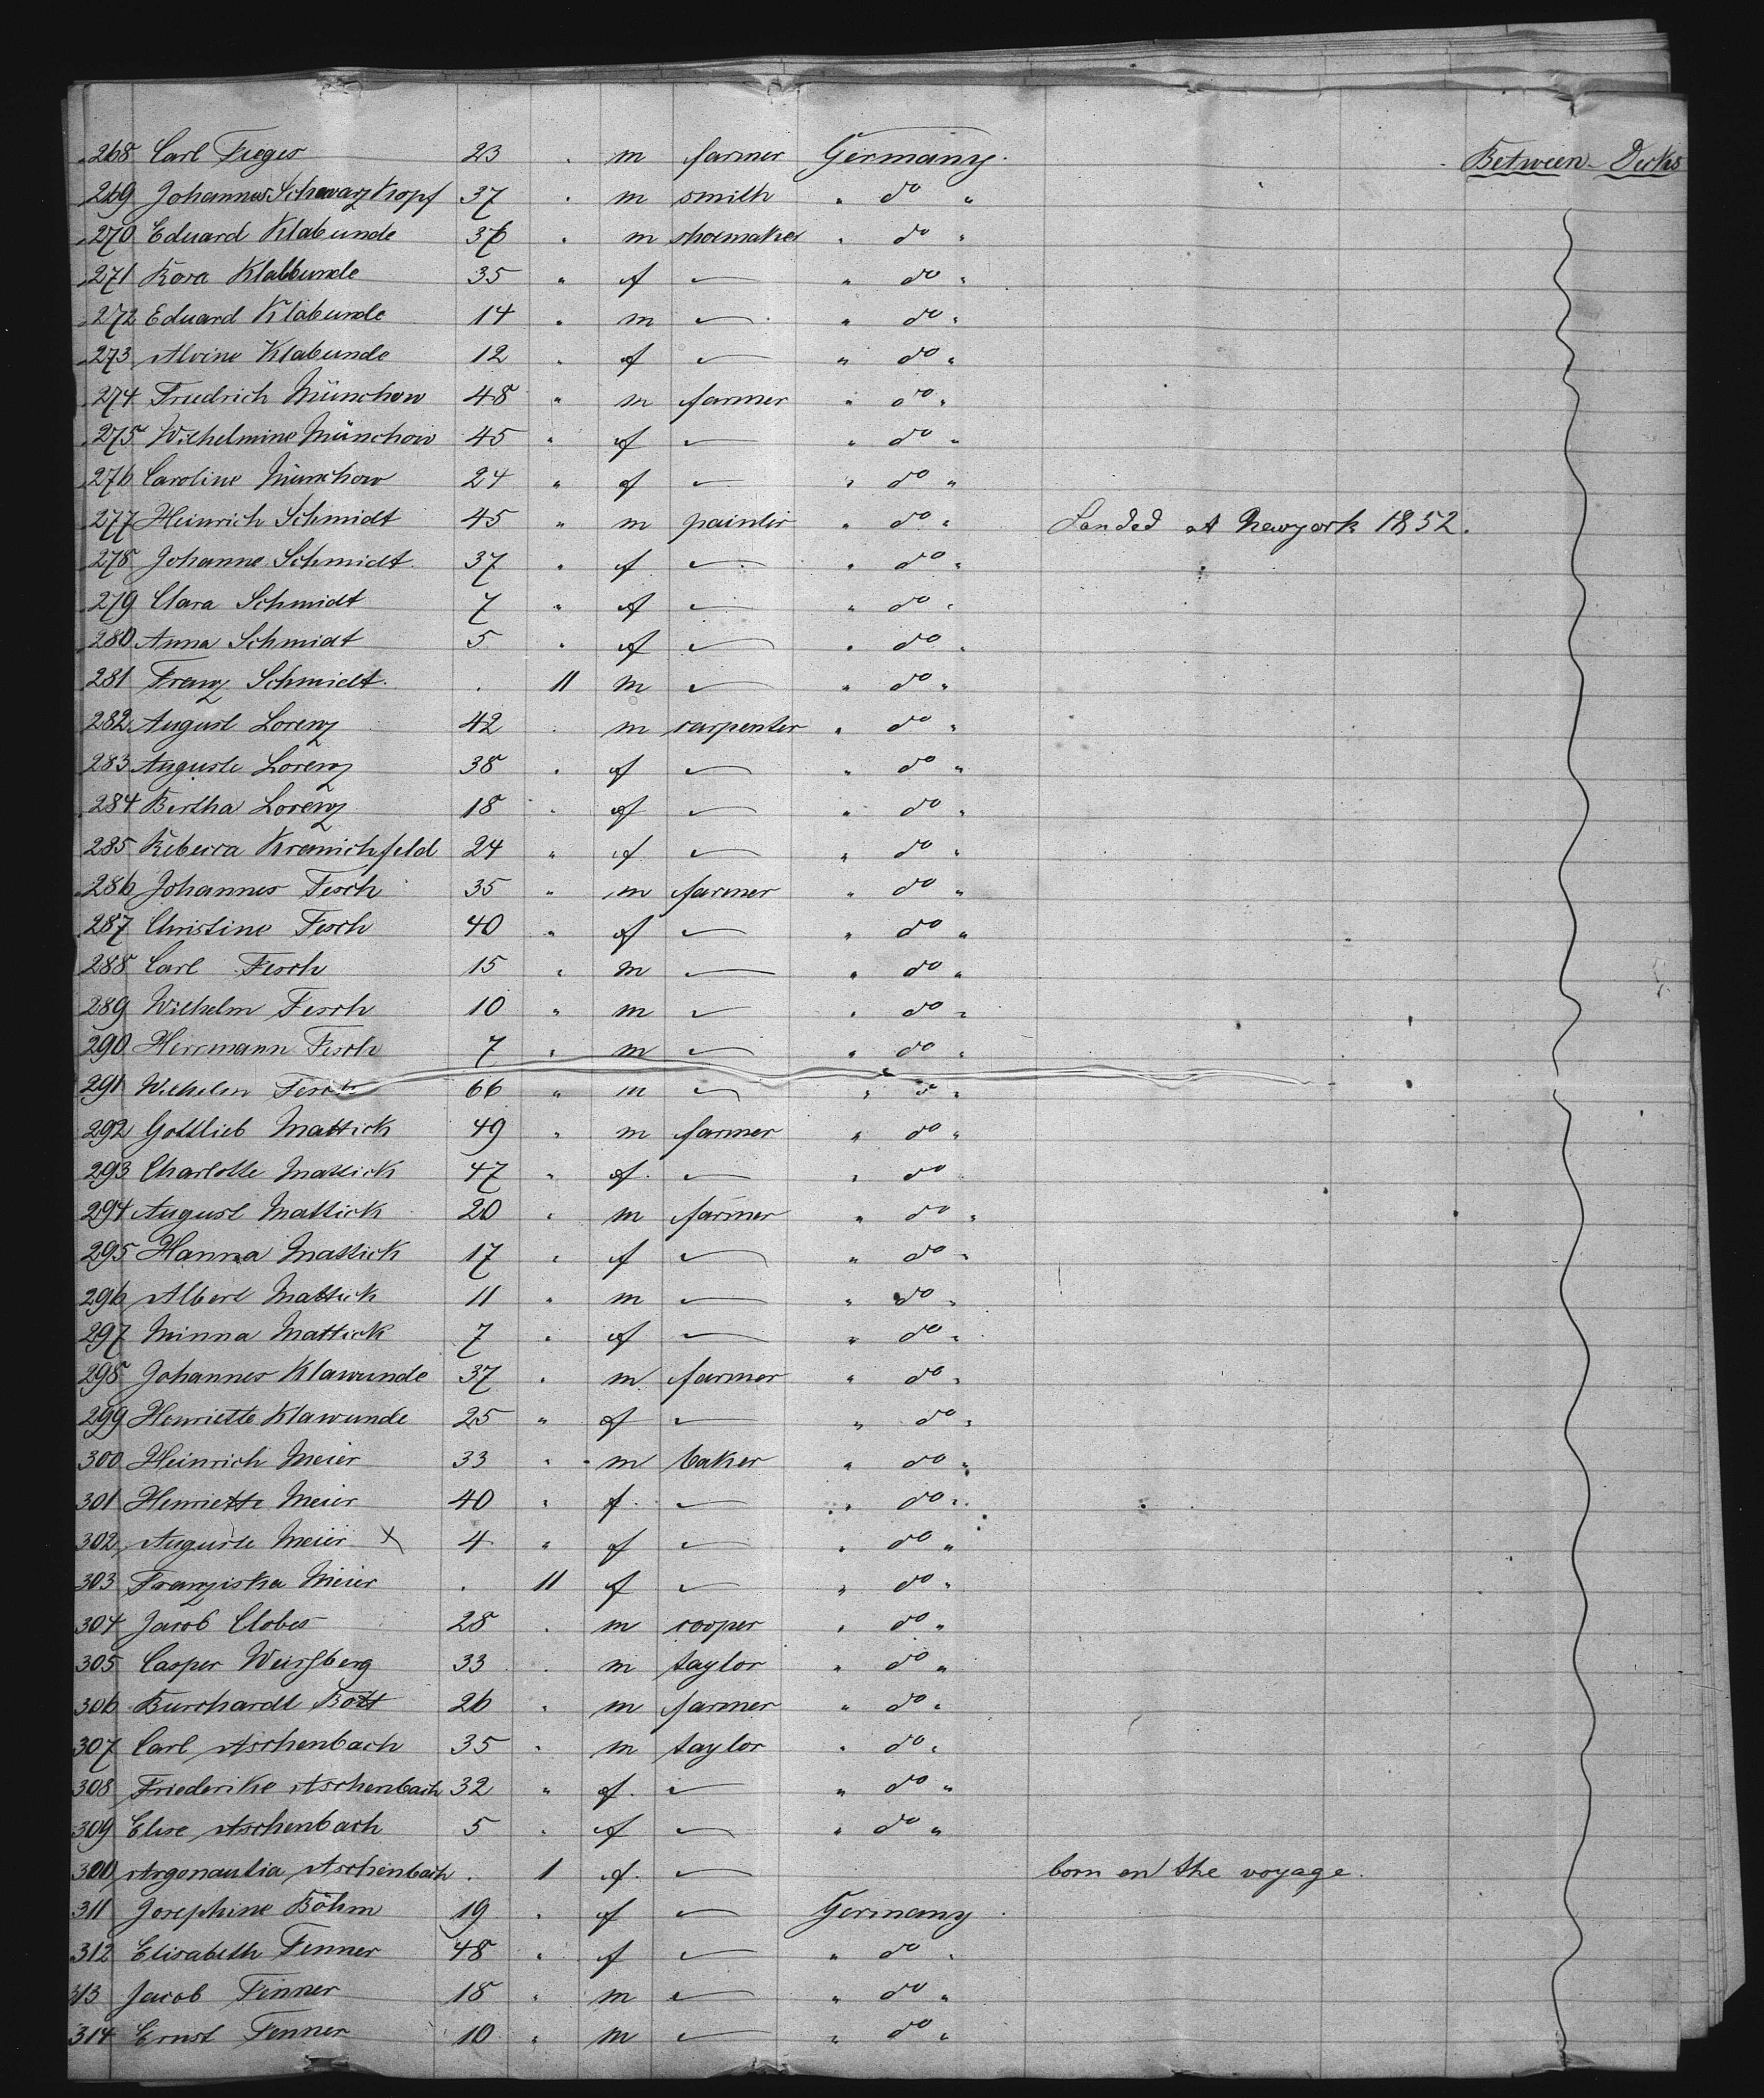 268 Carl Fieger 23 " m farmer Germany. Between Decks
269 Johannes Schwarzkopf 37 " m smith " do "
270 Eduard Klabunde 36 " m shoemaker " do "
271 Rosa Klabbunde 35 " f — " do "
272 Eduard Klabunde 14 " m — " do "
273 Alvine Klabunde 12 " f — " do "
274 Friedrich Münchow 48 " m farmer " do "
275 Wilhelmine Münchow 45 " f — " do "
276 Caroline Münchow 24 " f — " do "
277 Heinrich Schmidt 45 " m painter " do " Landed at Newyork 1852.
278 Johanne Schmidt 37 " f — " do "
279 Clara Schmidt 7 " f — " do "
280 Anna Schmidt 5 " f — " do "
281 Franz Schmidt . 11 m — " do "
282 August Lorenz 42 " m carpenter " do "
283 Auguste Lorenz 38 " f — " do "
284 Bertha Lorenz 18 " f — " do "
285 Rebecca Kranichfeld 24 " f — " do "
286 Johannes Fesch 35 " m farmer " do "
287 Christine Fesch 40 " f — " do "
288 Carl Fesch 15 " m — " do "
289 Wilhelm Fesch 10 " m — " do "
290 Herrmann Fesch 7 " m — " do "
291 Wilhelm Fesch 66 " m — " do "
292 Gottlieb Mattick 49 " m farmer " do "
293 Charlotte Mattick 47 " f — " do
294 August Mattick 20 " m farmer " do "
295 Hanna Mattick 17 " f — " do "
296 Albert Mattick 11 " m — " do "
297 Minna Mattick 7 " f — " do "
298 Johannes Klawunde 37 " m farmer " do "
299 Henriette Klawunde 25 " f — " do "
300 Heinrich Meier 33 " m baker " do "
301 Henriette Meier 40 " f — " do "
302 Auguste Meier X 4 " f — " do "
303 Franziska Meier . 11 f — " do "
304 Jacob Clobes 28 " m cooper " do "
305 Casper Weissberg 33 " m taylor " do "
306 Burchardt Bott 26 " m farmer " do "
307 Carl Aschenbach 35 " m taylor " do "
308 Friederike Aschenbach 32 " f — " do "
309 Elise Aschenbach 5 " f — " do "
Argonautia Aschenbach . 1 f — born on the voyage.
311 Josephine Böhm 19 " f — Germany
312 Elisabeth Fenner 48 " f — " do "
313 Jacob Fenner 18 " m — " do "
314 Ernst Fenner 10 " m — " do "